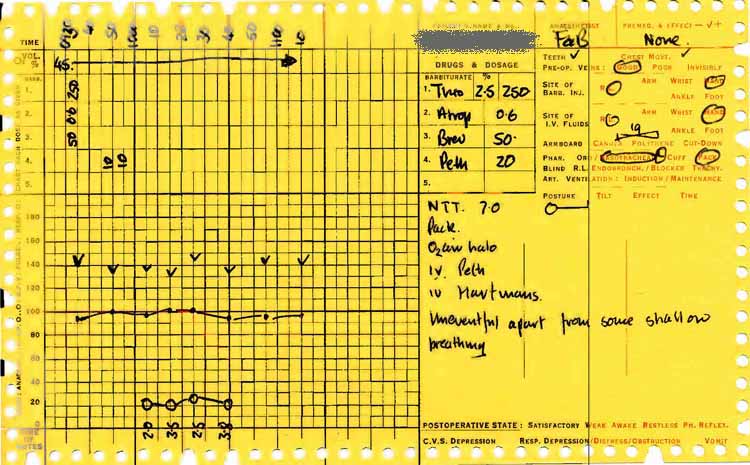 ANAESTHETIST PREMED. & EFFECT — √ +
F&B None.
TIME 0920 40 50 10 20 30 40 50 10
VOL. %
45
DRUGS & DOSAGE
TEETH ✓ CHEST MOVT. ✓
PRE-OP. VEINS: GOOD POOR INVISIBLY
BARBITURATE %
1. Thio 2.5 250
SITE OF BARB. INJ. R L ARM WRIST HAND
ANKLE FOOT
2. Atrop 0.6
SITE OF I.V. FLUIDS R L ARM WRIST HAND
ANKLE FOOT
19
3. Brev 50.
ARMBOARD CANULA POLYTHENE CUT-DOWN
4. Peth 20
PHAR. ORO/NASOTRACHEAL CUFF PACK
BLIND R.L. ENDOBRONCH./BLOCKER TRACHY.
5.
ART. VENTILATION: INDUCTION/MAINTENANCE
POSTURE TILT EFFECT TIME
1.
2.
3.
4.
5.
50 0.6 250
10
10
NTT. 7.0
Pack.
O₂ air halo
IV. Peth
IV Hartmans.
Uneventful apart from some shallow
breathing
180
160
140
120
100
80
60
40
20
0
2.0 3.5 2.5 3.0
POSTOPERATIVE STATE: SATISFACTORY WEAK AWAKE RESTLESS PH. REFLEX.
C.V.S. DEPRESSION RESP. DEPRESSION/DISTRESS/OBSTRUCTION VOMIT